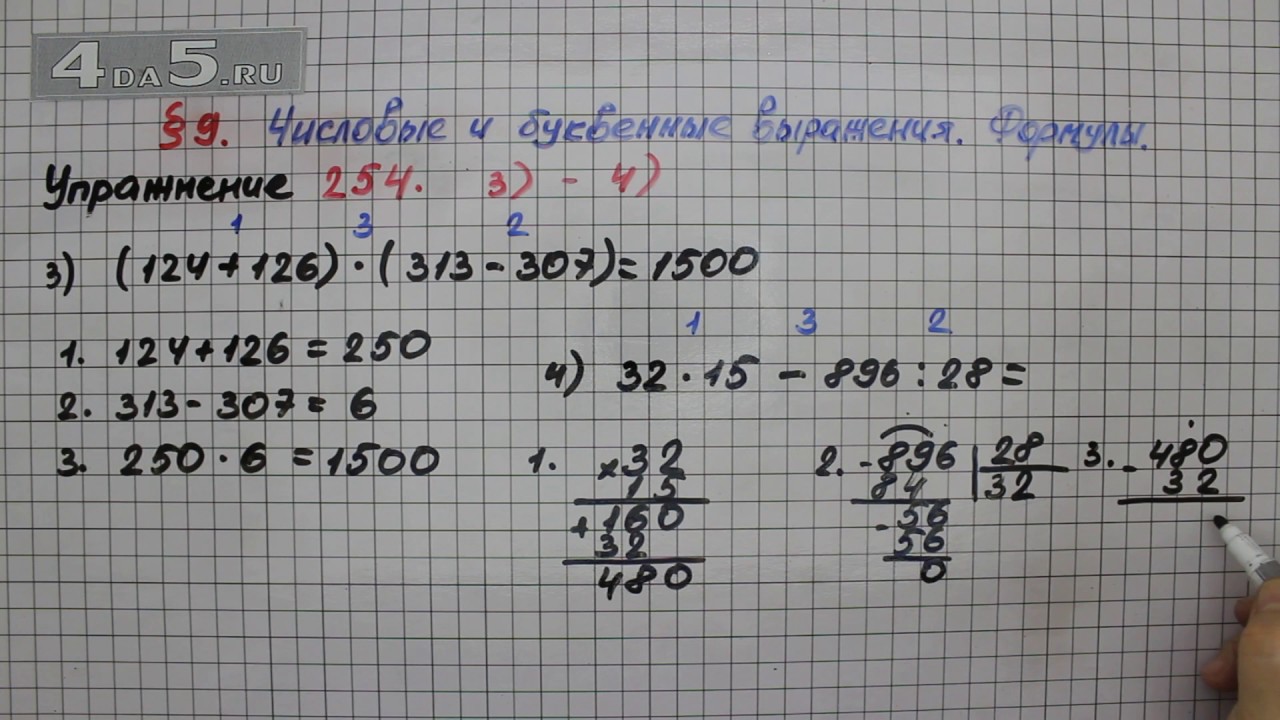 4DA5.RU
§ 9. Числовые и буквенные выражения. Формулы.
Упражнение 254. 3) - 4)
1 3 2
3) (124+126)·(313-307)=1500
1. 124+126=250
2. 313-307=6
3. 250·6=1500
1 3 2
4) 32·15-896:28=
1. ×32
15
+160
32
480
2. -896 28
84 32
-56
56
0
3. -480
32